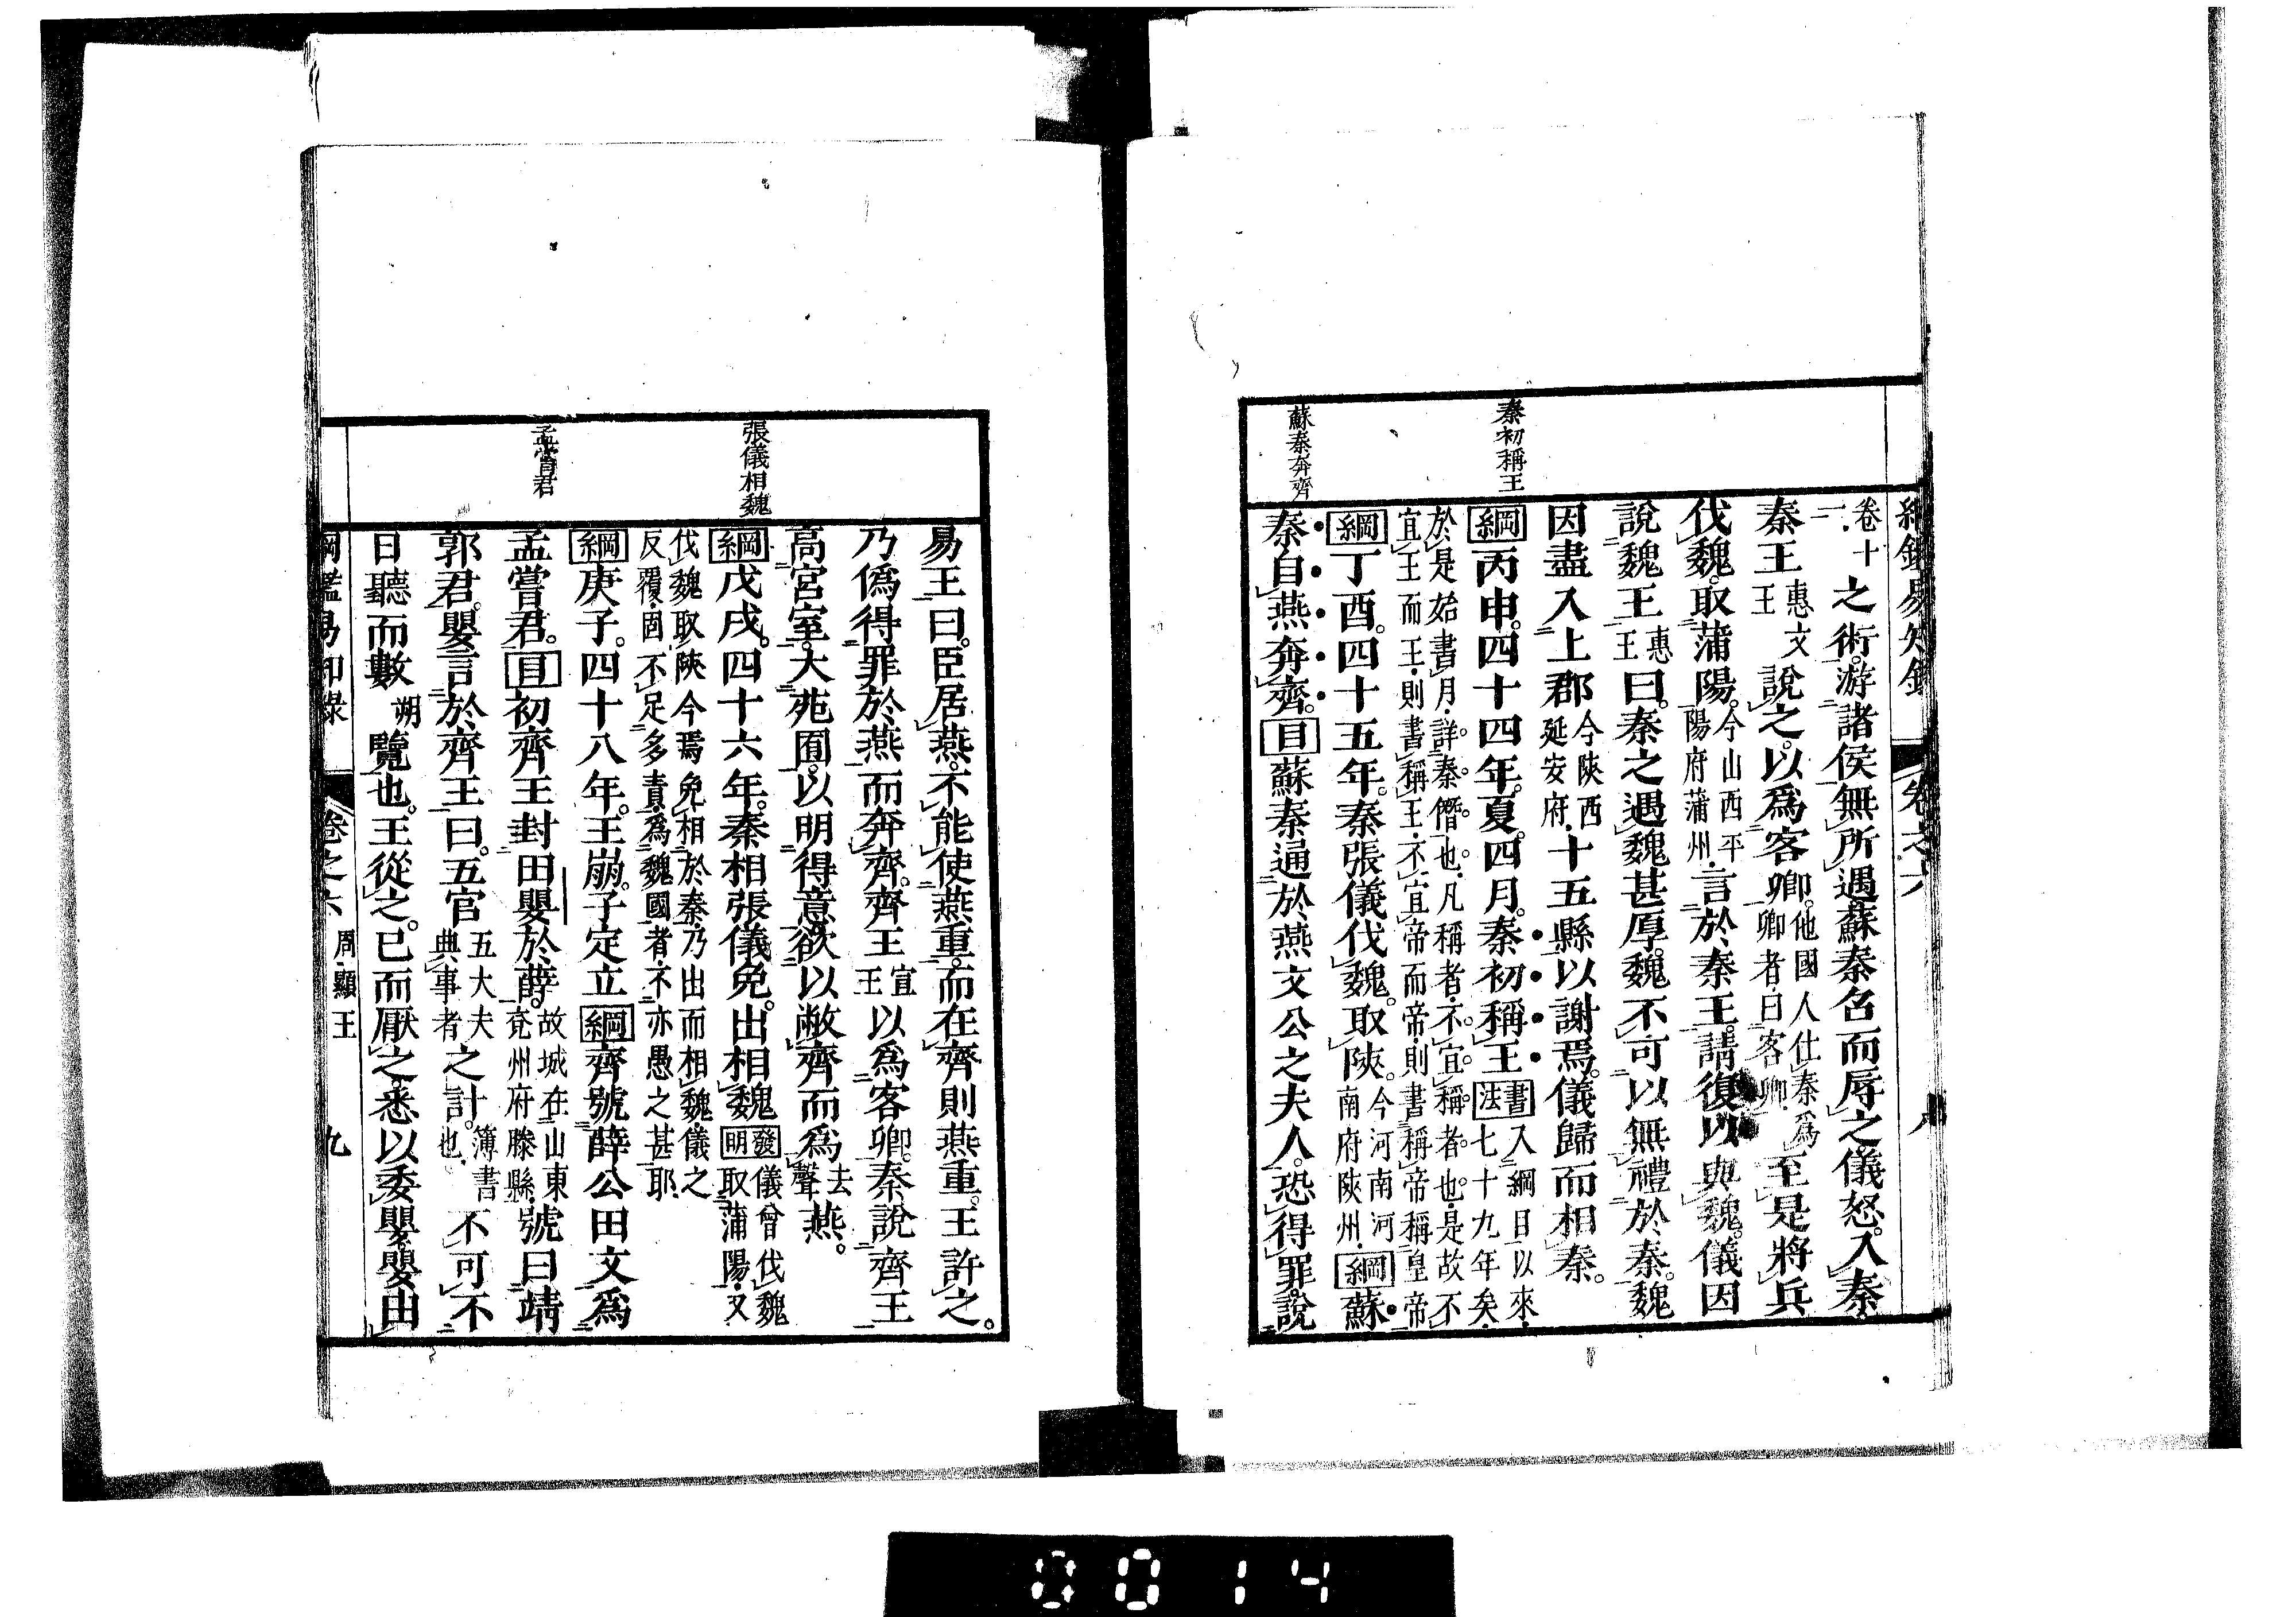 綱鑑易知錄　卷之六
秦初稱王
蘇秦奔齊
卷十一之術。游諸侯無所遇。蘇秦召而辱之。儀怒。入秦。
秦王惠文王說之。以爲客卿。他國人仕秦爲卿者、曰客卿。至是將兵
伐魏。取蒲陽。今山西平陽府蒲州。言於秦王。請復以與魏。儀因
說魏王惠王曰。秦之遇魏甚厚。魏不可以無禮於秦。魏
因盡入上郡今陝西延安府。十五縣以謝焉。儀歸而相秦。
綱丙申。四十四年。夏。四月。秦初稱王書法入綱目以來、七十九年矣、
於是始書月、詳秦僭也、凡稱者、不宜稱者也、是故不宜王而王、則書稱王、不宜帝而帝、則書稱帝稱皇帝
綱丁酉。四十五年。秦張儀伐魏。取陝。今河南河南府陝州。綱蘇
秦自燕奔齊。目蘇秦通於燕文公之夫人。恐得罪。說
張儀相魏
孟嘗君
易王曰。臣居燕。不能使燕重。而在齊則燕重。王許之。
乃僞得罪於燕而奔齊。齊王宣王以爲客卿。秦說齊王
高宮室。大苑囿。以明得意。欲以敝齊而爲去聲燕。
綱戊戌。四十六年。秦相張儀免。出相魏發明儀曾伐魏取蒲陽、又
伐魏取陝今焉免相於秦、乃出而相魏、儀之反覆、固不足多責、爲魏國者、不亦愚之甚耶、
綱庚子。四十八年。王崩。子定立綱齊號薛公田文爲
孟嘗君。目初齊王封田嬰於薛。故城在山東兗州府滕縣、號曰靖
郭君。嬰言於齊王曰。五官五大夫典事者之計。簿書也、不可不
日聽而數朔覽也。王從之。已而厭之。悉以委嬰。嬰由
綱鑑易知錄　卷之六　周顯王　九